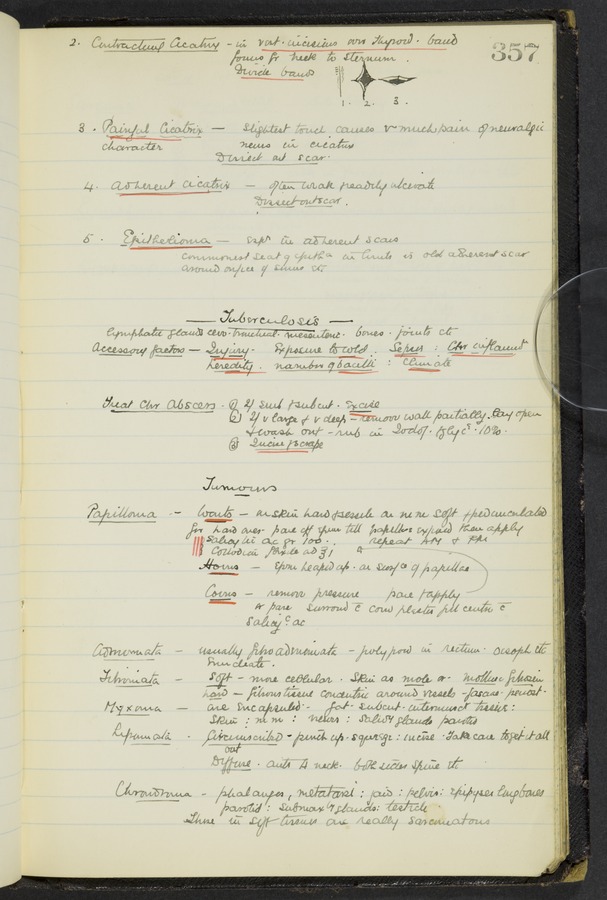 357
2. Contractural Cicatrix - in vert. incisions over Thyroid. band
forms fr neck to Sternum.
Divide band
1. 2. 3.
3. Painful Cicatrix — Slightest touch causes v much pain of neuralgic
character nerves in cicatrix
Dissect out scar.
4. Adherent Cicatrix — often weak readily ulcerate
Dissect out scar.
5. Epithelioma — esp in adherent scars
Commonest seat of epith in limbs is old adherent scar
around orifice of sinus etc
— Tuberculosis —
Lymphatic glands cerv. bronchial. mesenteric. bones. joints etc
Accessory factors — Injury. Exposure to cold. Sepsis : Chr inflammn
heredity. number of bacilli : Climate
Treat Chr Abscess. ① If small & subcut. Excise
② If v large & v deep - remove wall partially. lay open
& wash out - rub in Iodof. Glyc. 10%.
③ Incise & scrape
Tumours
Papilloma - Warts - on skin hard & sessile on m m soft & pedunculated
for hard ones pare off epm till papillae exposed then apply
Salicylic ac gr 100. repeat
Collodion flexile ad ℥1
Horns - Epm heaped up. on surface of papillae
Corns - remove pressure pare & apply
or pare surround c corn plaster fill centre c
Salicylc ac
Adenomata - usually fibro adenomata - polypoid in rectum. oesoph etc
Enucleate.
Fibromata - Soft - more cellular. Skin as mole or molluscum fibrosum
hard - fibrous tissue concentric around vessels - fasciae. periost.
Myxoma - are encapsuled - fat. subcut. intermusct tissue :
Skin : m m : nerves : salivy glands parotid
Lipomata - Circumscribed - pinch up. squeeze : incise. Take care to get it all
out
Diffuse. ants & neck. both sides spine etc
Chondroma - phalanges, metatarsal : jaw : pelvis : epiphyses long bones
parotid : submaxy glands : testicle
Those in soft tissues are really sarcomatous